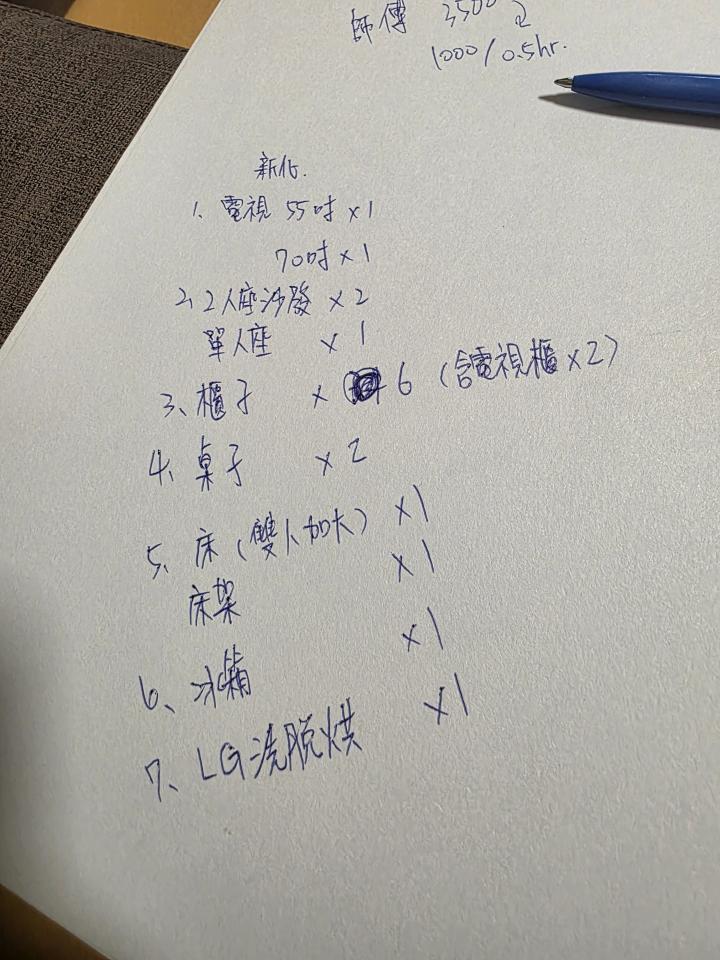 師傅 3500
1000/0.5hr.
新化.
1、電視 55吋 x1
70吋 x1
2、2人座沙發 x2
單人座 x1
3、櫃子 x 6 (含電視櫃x2)
4、桌子 x2
5、床(雙人加大) x1
床架 x1
6、冰箱 x1
7、LG洗脫烘 x1